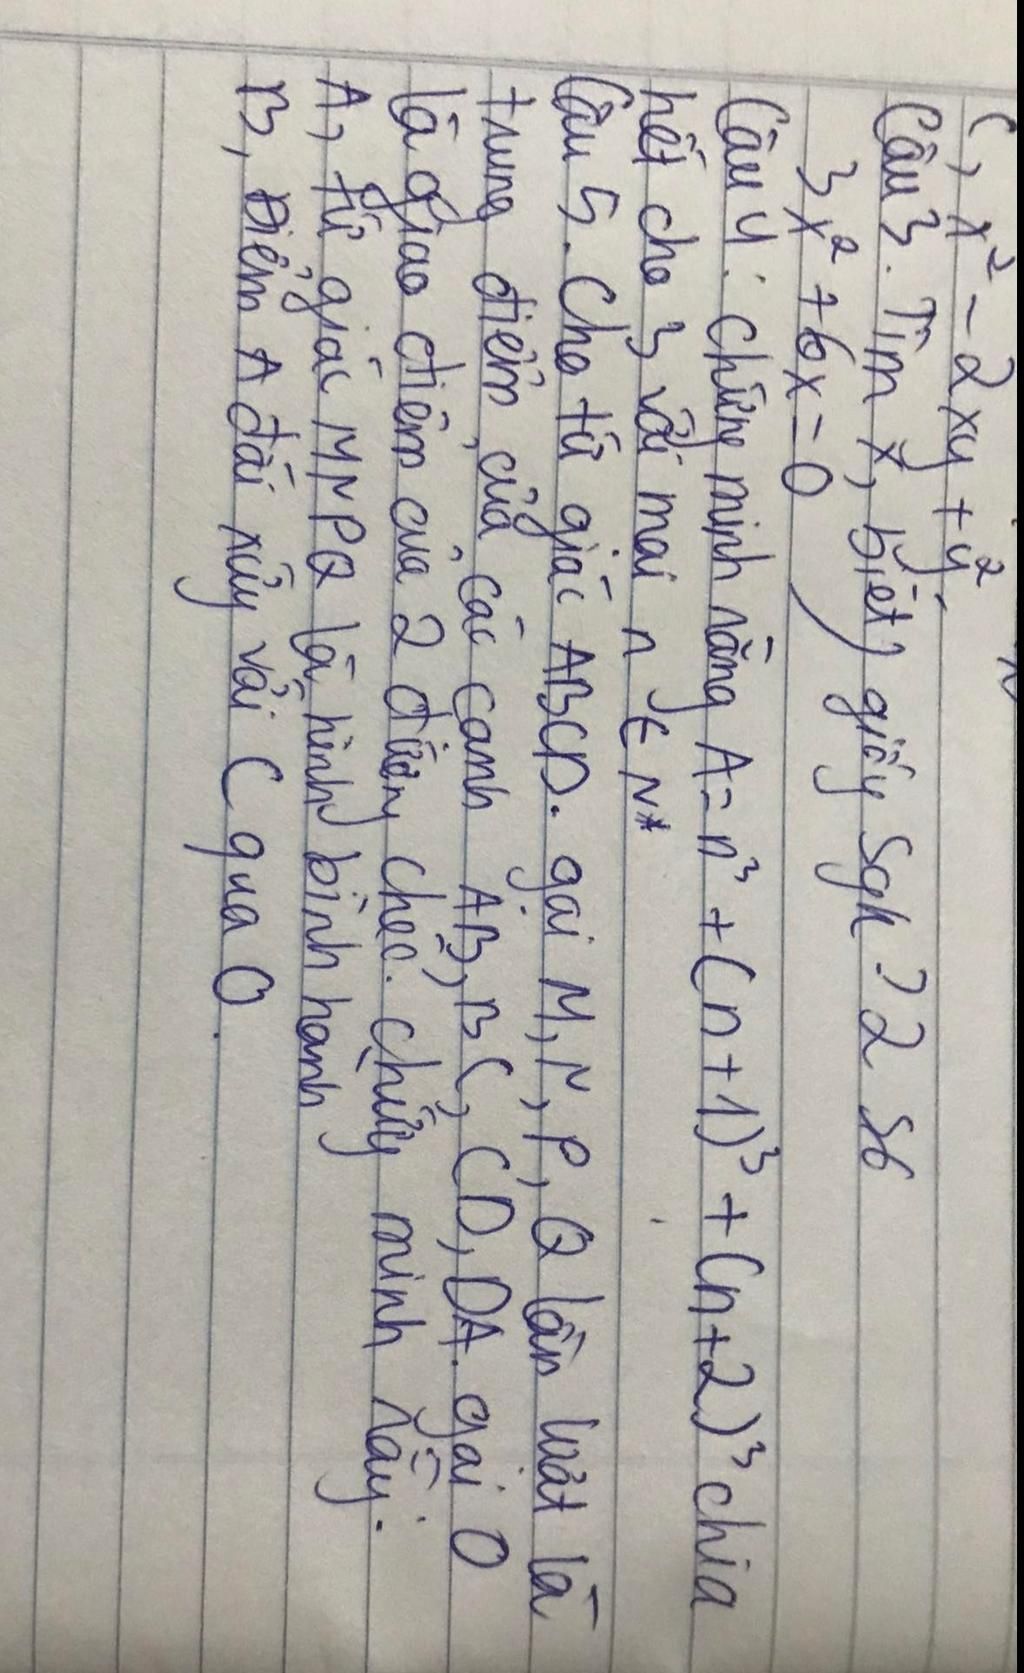 c, x² - 2xy + y²
Câu 3. Tìm x, biết, giống Sgk ? 2 s6
3x² + 6x = 0
Câu 4. Chứng minh rằng A = n³ + (n+1)³ + (n+2)³ chia
hết cho 3 với mọi n ∈ N*
Câu 5. Cho tứ giác ABCD. gọi M, N, P, Q lần lượt là
trung điểm của các cạnh AB, BC, CD, DA. gọi O
là giao điểm của 2 đường chéo. chứng minh rằng.
A, tứ giác MNPQ là hình bình hành
B, Điểm A đối xứng với C qua O.